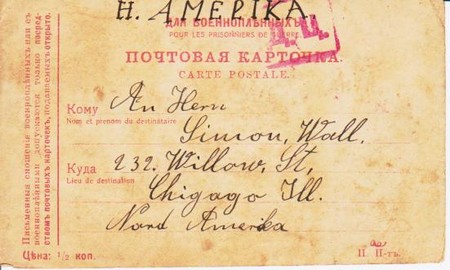 Н. АМЕРІКА.
ДЛЯ ВОЕННОПЛѢННЫХЪ.
POUR LES PRISONNIERS DE GUERRE.
Д. Ц.
ПОЧТОВАЯ КАРТОЧКА.
CARTE POSTALE.
Кому An Herrn
Nom et prénom du destinataire
Simon, Wall.
Куда 232. Willow, St,
Lieu de destination
Chigago Ill.
Nord Amerika
Письменныя сношенія военноплѣнныхъ или съ
военноплѣнными допускаются только посред-
ствомъ почтовыхъ карточекъ, подаваемыхъ открыто.
Цѣна: 1/2 коп.
П. П-гъ.